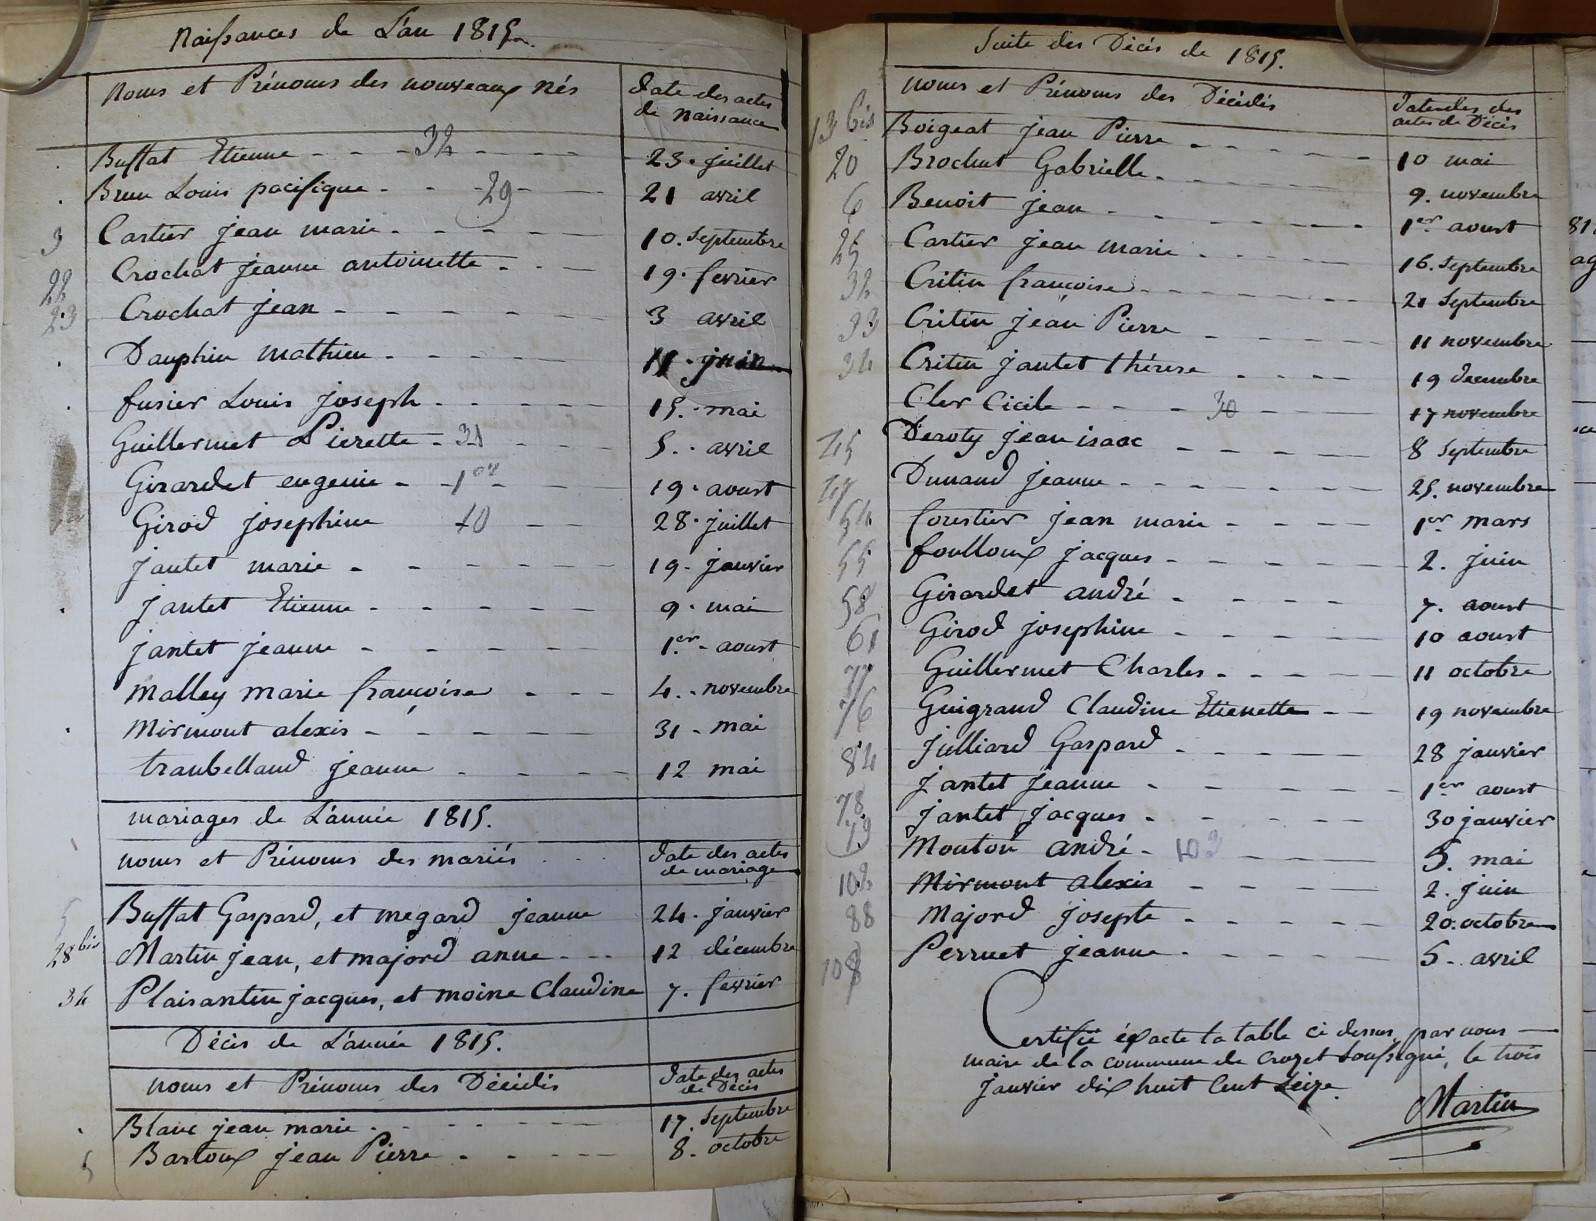 Naissances de L'an 1815.
Noms et Prénoms des nouveaux nés
date des actes
de Naissance
Buffat Etienne - - - 32 - - - 23. juillet
Brun Louis pacifique - - - 29 - - 21 avril
3 Cartier jean marie - - - - 10. Septembre
22 Crochat jeanne antoinette - - - 19. fevrier
23 Crochat jean - - - - - 3 avril
Dauphin mathieu - - - - - 11. juin
fusier Louis joseph - - - - - 15. mai
Guillermet Pierette - 31 - - - 5. avril
Girardet eugenie - - 1er - - - 19. aoust
Girod josephine 40 - - 28. juillet
jantet marie - - - - - 19. janvier
jantet Etienne - - - - - 9. mai
jantet jeanne - - - - - 1er - aoust
Malley marie françoise - - - 4. novembre
Mirmont alexis - - - - - 31. mai
trambelland jeanne - - - - 12 mai
mariages de L'année 1815.
noms et Prénoms des mariés
date des actes
de mariage
5 Buffat Gaspard, et megard jeanne 24. janvier
28 bis Martin jean, et majord anne - - - 12 décembre
34 Plaisantin jacques, et moine Claudine 7. fevrier
Décès de L'année 1815.
noms et Prénoms des Décédés
date des actes
de Décès
Blanc jean marie - - - - - 17. Septembre
5 Bartoux jean Pierre - - - - - 8. octobre
Suite des Décès de 1815.
noms et Prénoms des Décédés
actes de Décès
13 bis Boigeat jean Pierre - - - - - 10 mai
20 Brochut Gabrielle - - - - - 9. novembre
6 Benoit jean - - - - - 1er aoust
25 Cartier jean marie - - - - - 16. Septembre
32 Critin françoise - - - - - 21 Septembre
33 Critin jean Pierre - - - - 11 novembre
34 Critin jantet thérese - - - - 19 decembre
Cler Cicile - - - 30 - - - 17 novembre
45 Deroty jean isaac - - - - 8 Septembre
47 Dunand jeanne - - - - - 25. novembre
54 fourtier jean marie - - - - 1er mars
55 foulloux jacques - - - - - 2. juin
58 Girardet andré - - - - 7. aoust
61 Girod josephine - - - - - 10 aoust
77 Guillermet Charles - - - - 11 octobre
76 Guigrand Claudine Etienette - - 19 novembre
84 julliard Gaspard - - - - - 28 janvier
78 jantet jeanne - - - - - 1er aoust
79 jantet jacques - - - - - 30 janvier
Mouton andré - 103 - - - 5. mai
102 Mirmont alexis - - - - - 2. juin
88 Majord josepte - - - - - 20. octobre
108 Perruet jeanne - - - - - 5. avril
Certifié éxacte la table ci dessus, par nous
maire de la commune de Crozet Soussigné, le trois
janvier dix huit Cent Seize.
Martin